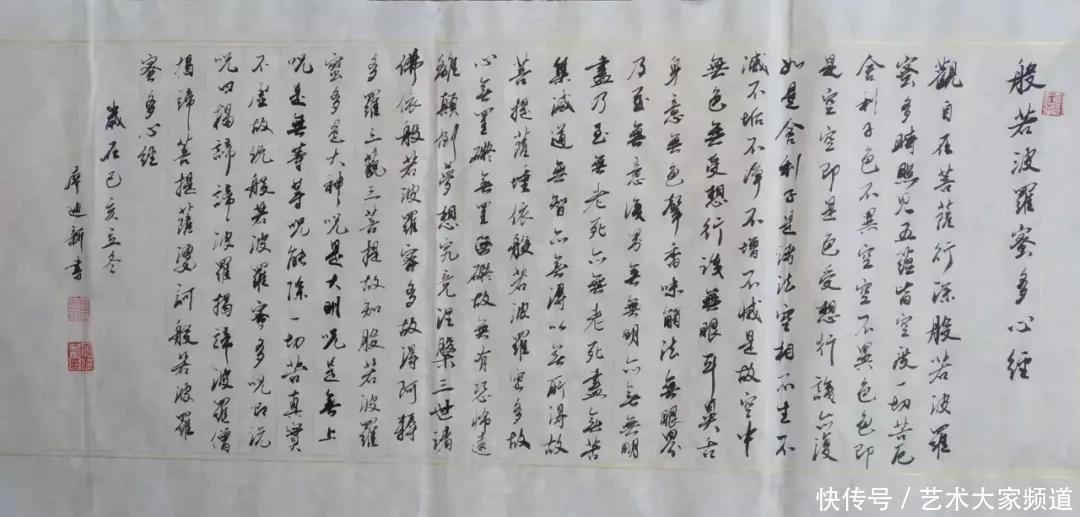 般若波羅蜜多心經
觀自在菩薩行深般若波羅
蜜多時照見五蘊皆空度一切苦厄
舍利子色不異空空不異色色即
是空空即是色受想行識亦復
如是舍利子是諸法空相不生不
滅不垢不淨不增不減是故空中
無色無受想行識無眼耳鼻舌
身意無色聲香味觸法無眼界
乃至無意識界無無明亦無無明
盡乃至無老死亦無老死盡無苦
集滅道無智亦無得以無所得故
菩提薩埵依般若波羅蜜多故
心無罣礙無罣礙故無有恐怖遠
離顛倒夢想究竟涅槃三世諸
佛依般若波羅蜜多故得阿耨
多羅三藐三菩提故知般若波羅
蜜多是大神呪是大明呪是無上
呪是無等等呪能除一切苦真實
不虛故說般若波羅蜜多呪即說
呪曰揭諦揭諦波羅揭諦波羅僧
揭諦菩提薩婆訶般若波羅
蜜多心經
歲在己亥立冬
迪新書
快传号 / 艺术大家频道